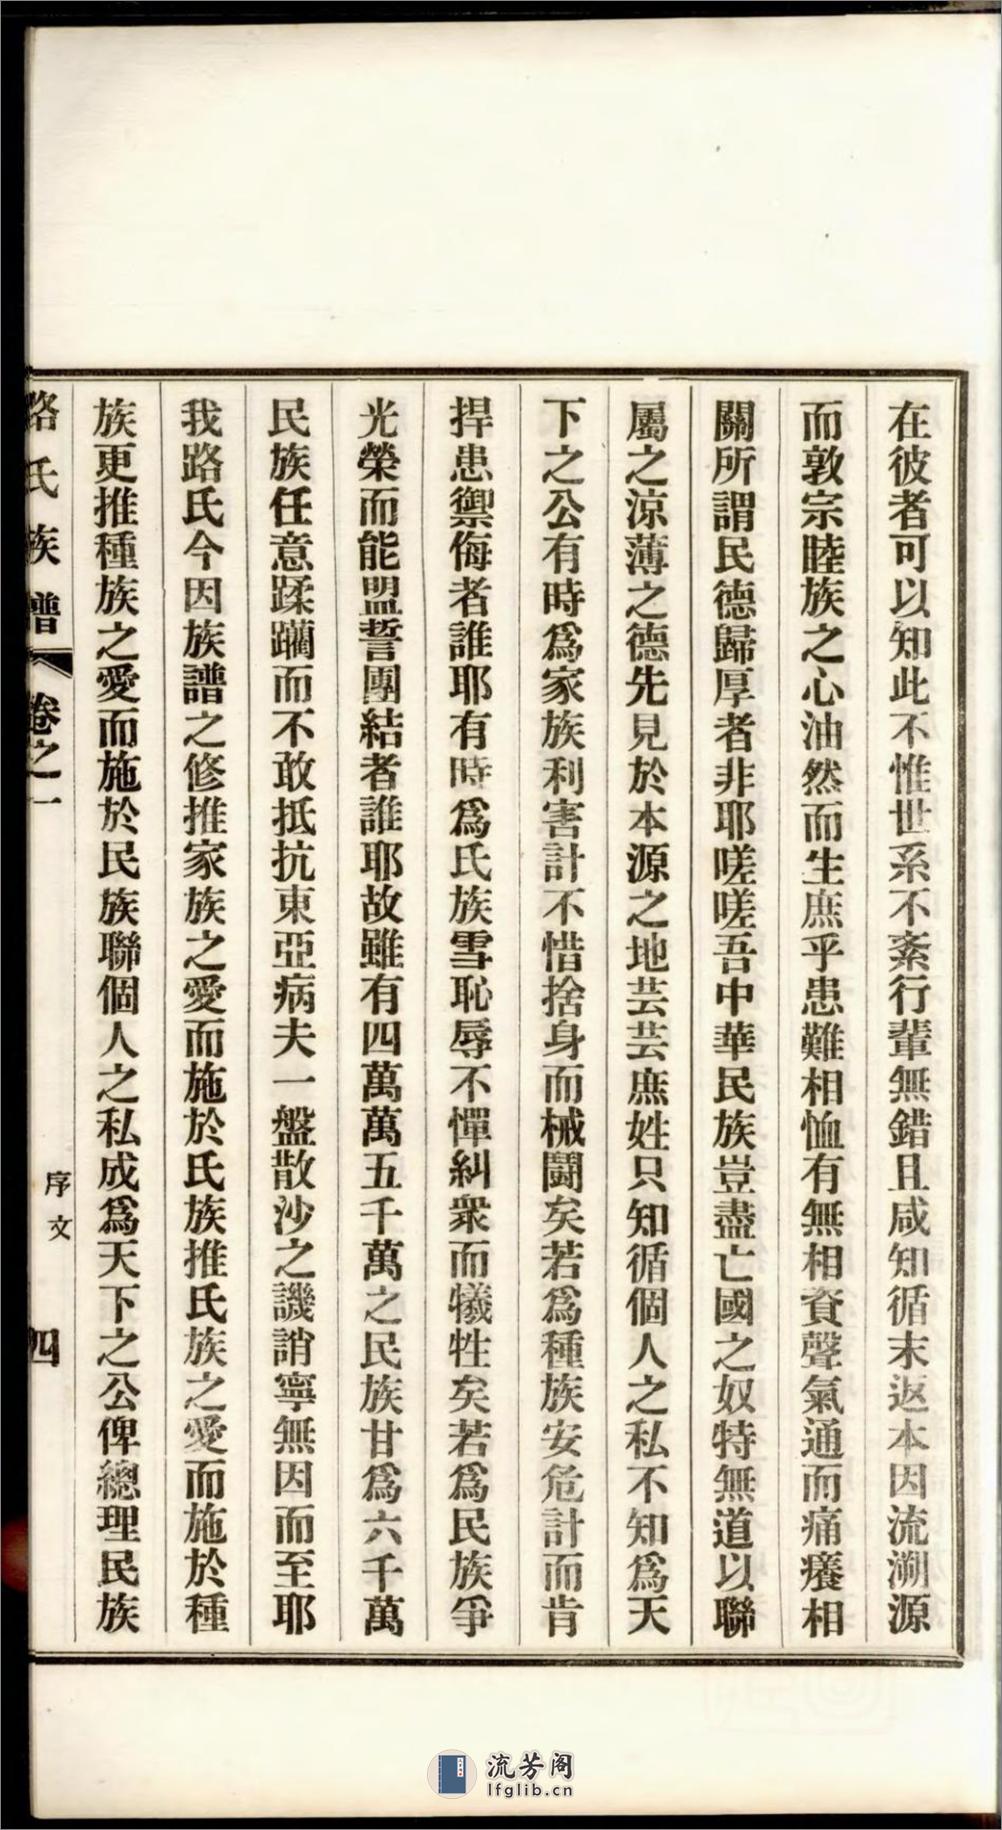 在彼者可以知此不惟世系不紊行輩無錯且咸知循末返本因流溯源
而敦宗睦族之心油然而生庶乎患難相恤有無相資聲氣通而痛癢相
關所謂民德歸厚者非耶嗟嗟吾中華民族豈盡亡國之奴特無道以聯
屬之涼薄之德先見於本源之地芸芸庶姓只知循個人之私不知爲天
下之公有時爲家族利害計不惜捨身而械鬪矣若爲種族安危計而肯
捍患禦侮者誰耶有時爲氏族雪恥辱不憚糾衆而犧牲矣若爲民族爭
光榮而能盟誓團結者誰耶故雖有四萬萬五千萬之民族甘爲六千萬
民族任意蹂躪而不敢抵抗東亞病夫一盤散沙之譏誚寧無因而至耶
我路氏今因族譜之修推家族之愛而施於氏族推氏族之愛而施於種
族更推種族之愛而施於民族聯個人之私成爲天下之公俾總理民族
路氏族譜 卷之一 序文 四
流芳阁
lfglib.cn